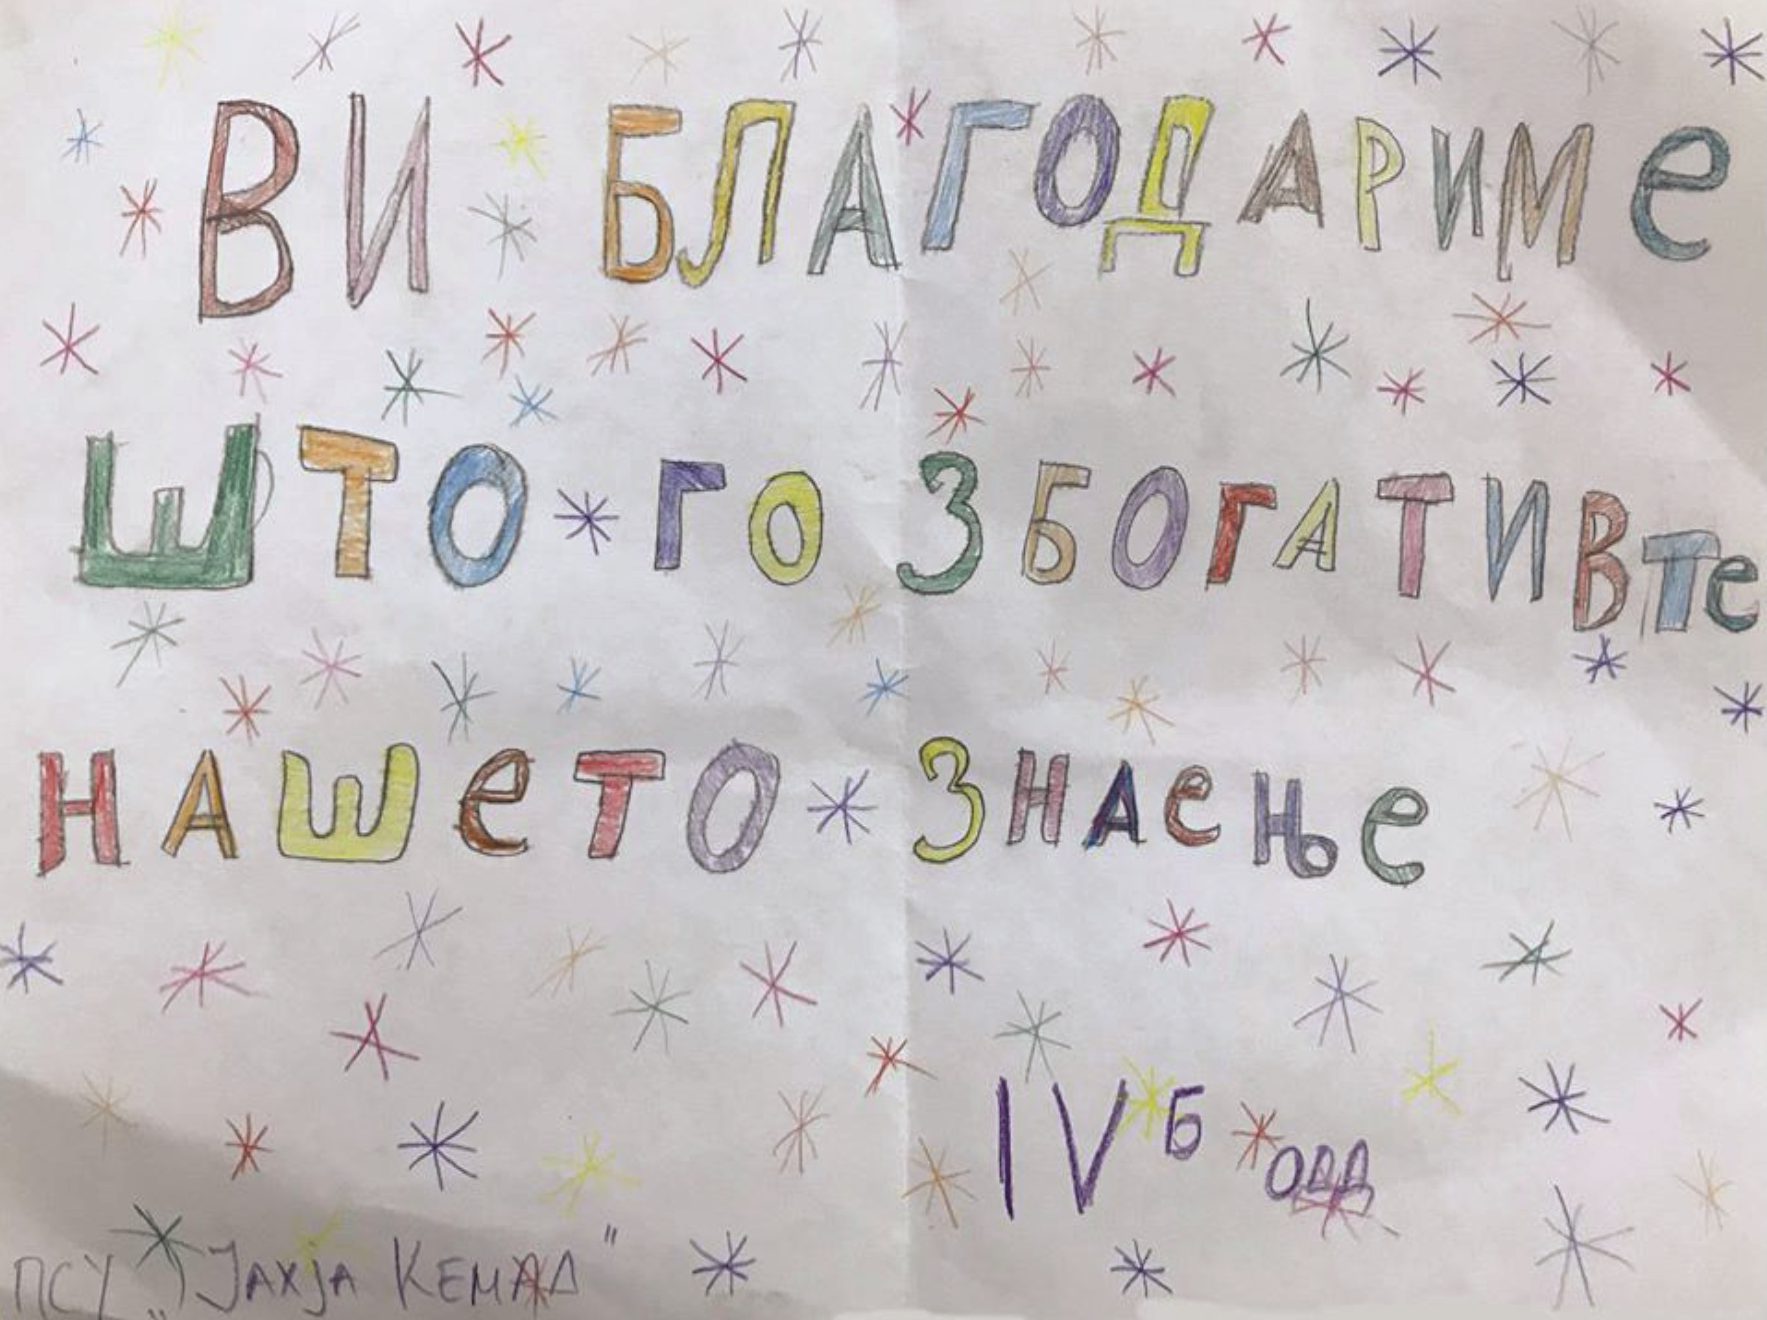 ВИ БЛАГОДАРИМе
ШТО ГО ЗБОГАТИВТе
НАШеТО ЗНАеЊе
IV б одд
ПСУ „Јахја Кемал"